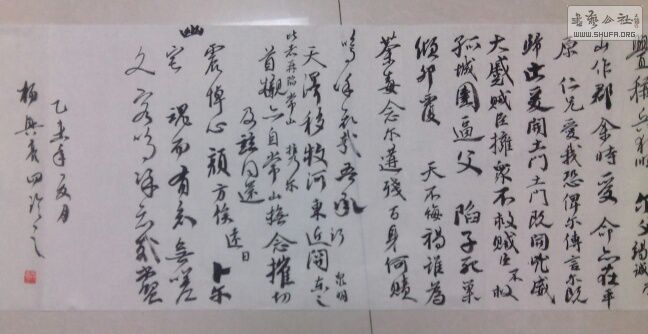 書藝公社
WWW.SHUFA.ORG
稱兵犯
山作郡余時受命亦在平
原仁兄愛我恐俾尔傳言尔既
歸止爰開土門土門既開兇威
大蹙賊臣擁衆不救賊臣不救
孤城圍逼父陷子死巢
傾卵覆天不悔禍誰為
荼毒念尔遘殘百身何贖
嗚呼哀哉吾承
泉明
天澤移牧河東近
比者再陷常山携尔
首櫬亦自常山撫念摧切
及茲同還
震悼心顏方俟遠日卜尔
幽宅魂而有知無嗟
久客嗚呼哀哉尚饗
乙未年夏月